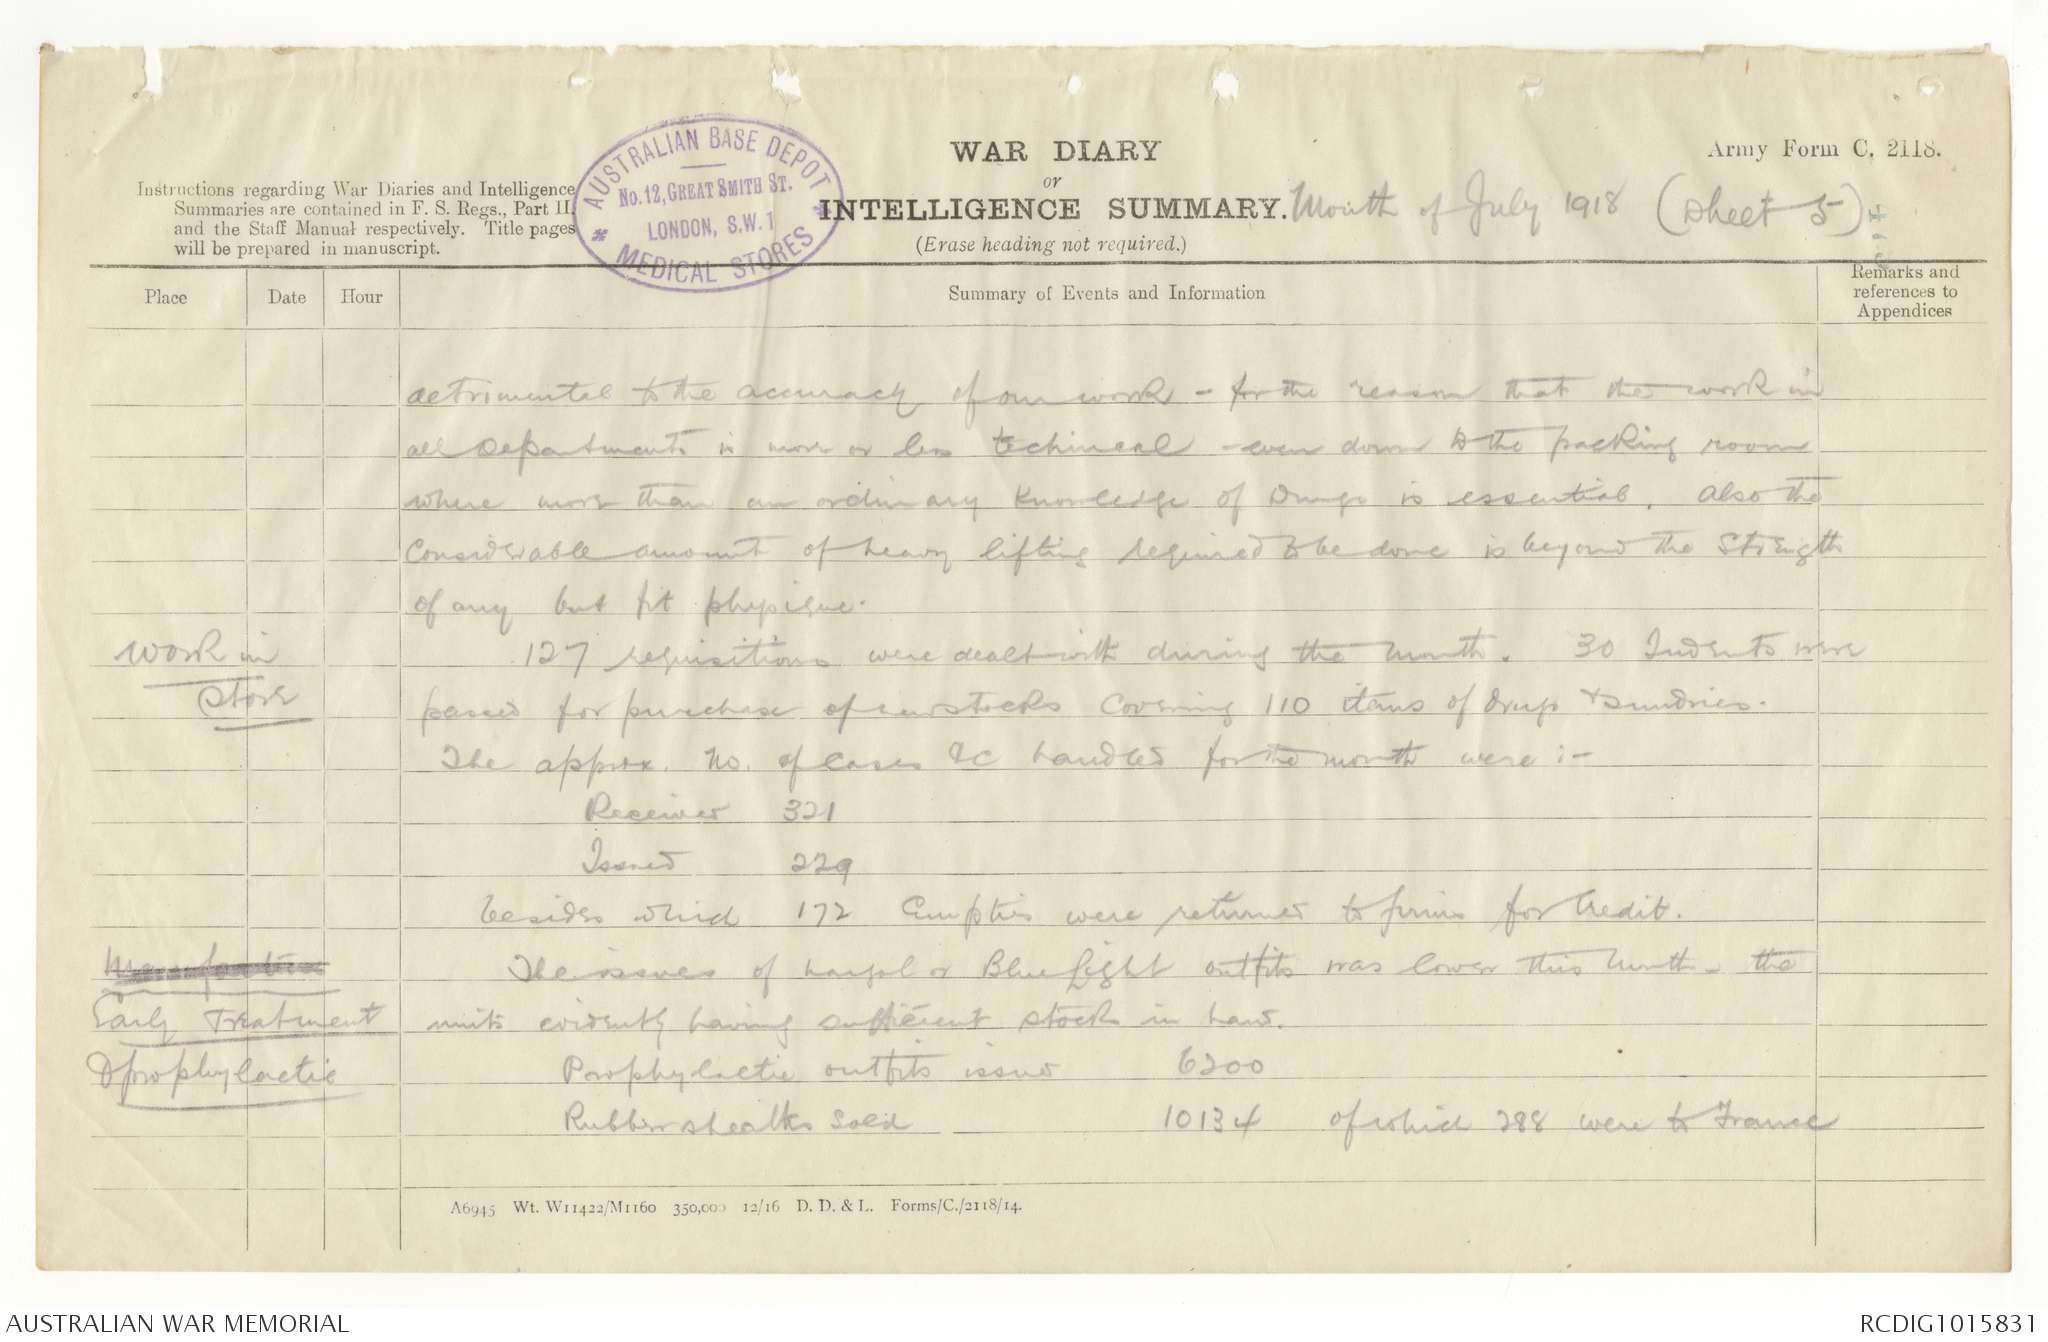 WAR DIARY
or
INTELLIGENCE SUMMARY.
(Erase heading not required.)
Month of July 1918 (Sheet 5)
Army Form C. 2118.
Instructions regarding War Diaries and Intelligence
Summaries are contained in F. S. Regs., Part II.
and the Staff Manual respectively. Title pages
will be prepared in manuscript.
AUSTRALIAN BASE DEPOT
No. 12, GREAT SMITH ST.
LONDON, S.W. 1
* MEDICAL STORES *
Place
Date
Hour
Summary of Events and Information
Remarks and
references to
Appendices
detrimental to the accuracy of our work - for the reason that the work in
all Departments is more or less technical - even down to the packing room
where more than an ordinary knowledge of Drugs is essential. Also the
considerable amount of heavy lifting required to be done is beyond the strength
of any but fit physique.
Work in
Store
127 requisitions were dealt with during the Month. 30 Indents were
passed for purchase of new stocks covering 110 items of Drugs & sundries.
The approx. No. of Cases &c handled for the month were :-
Received 321
Issued 229
besides which 172 Empties were returned to firms for Credit.
Early Treatment
& prophylactic
The issues of Nargol or Blue Light outfits was lower this Month - the
units evidently having sufficient stock in hand.
Prophylactic outfits issued 6200
Rubber sheaths sold — 10134 of which 288 were to France
A6945 Wt. W11422/M1160 350,000 12/16 D. D. & L. Forms/C./2118/14.
AUSTRALIAN WAR MEMORIAL
RCDIG1015831